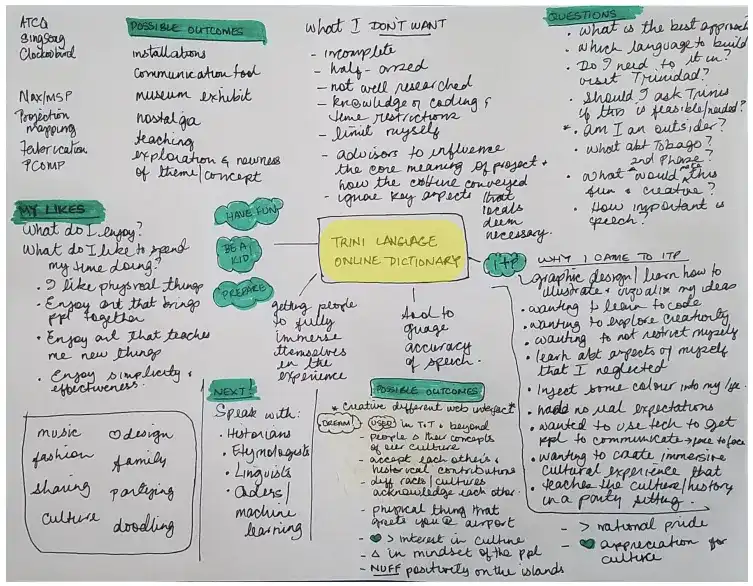 ATCQ
SingSong
Clockoobird
Max/MSP
Projection
mapping
Fabrication
PCOMP
POSSIBLE OUTCOMES
installations
communication tool
museum exhibit
nostalga
teaching
exploration & newness
of theme/concept
What I DON'T WANT
- incomplete
- half-assed
- not well researched
- knowledge of coding &
time restrictions
- limit myself
- advisors to influence
the core meaning of project +
how the culture conveyed
- ignore key aspects that
locals
deem
necessary.
QUESTIONS
• What is the best approach
• Which language to build
it in?
• Do I need to
visit Trinidad?
• Should I ask Trinis
if this is feasible/needed?
* • Am I an outsider?
• What abt Tobago?
2nd Phase?
• What would make this
fun & creative?
• How important is
speech?
MY LIKES
What do I enjoy?
What do I like to spend
my time doing?
• I like physical things
• Enjoy art that brings
ppl together
• Enjoy art that teaches
me new things
• Enjoy simplicity &
effectiveness.
HAVE FUN
BE A
KID
PREPARE
TRINI LANGUAGE
ONLINE DICTIONARY
getting people
to fully
immerse
themselves
in the
experience
tool to
guage
accuracy
of speech.
ITP
WHY I CAME TO ITP
• graphic design/learn how to
illustrate & vizualize my ideas
• wanting to learn to code
• wanting to explore creativity
• wanting to not restrict myself
• learn abt aspects of myself
that I neglected
• Inject some colour into my life.
• had no real expectations
• wanted to use tech to get
ppl to communicate face to face
• wanting to create immersive
cultural experience that
teaches the culture/history
in a party setting.
music
♡ design
fashion
family
sharing
partying
culture
doodling
NEXT!
Speak with:
• Historians
• Etymologists
• Linguists
• Coders/
machine
learning
POSSIBLE OUTCOMES
* Creative different web interact *
DREAM!
- USED in T&T & beyond
- people Δ their concepts
of our culture
- accept each others
historical contributions
- diff races/cultures
acknowledge each other.
- physical thing that
greets you @ airport
- ♥ > interest in culture
- Δ in mindset of the ppl
- NUFF positivity on the islands
- > national pride
- ♥ appreciation for
culture